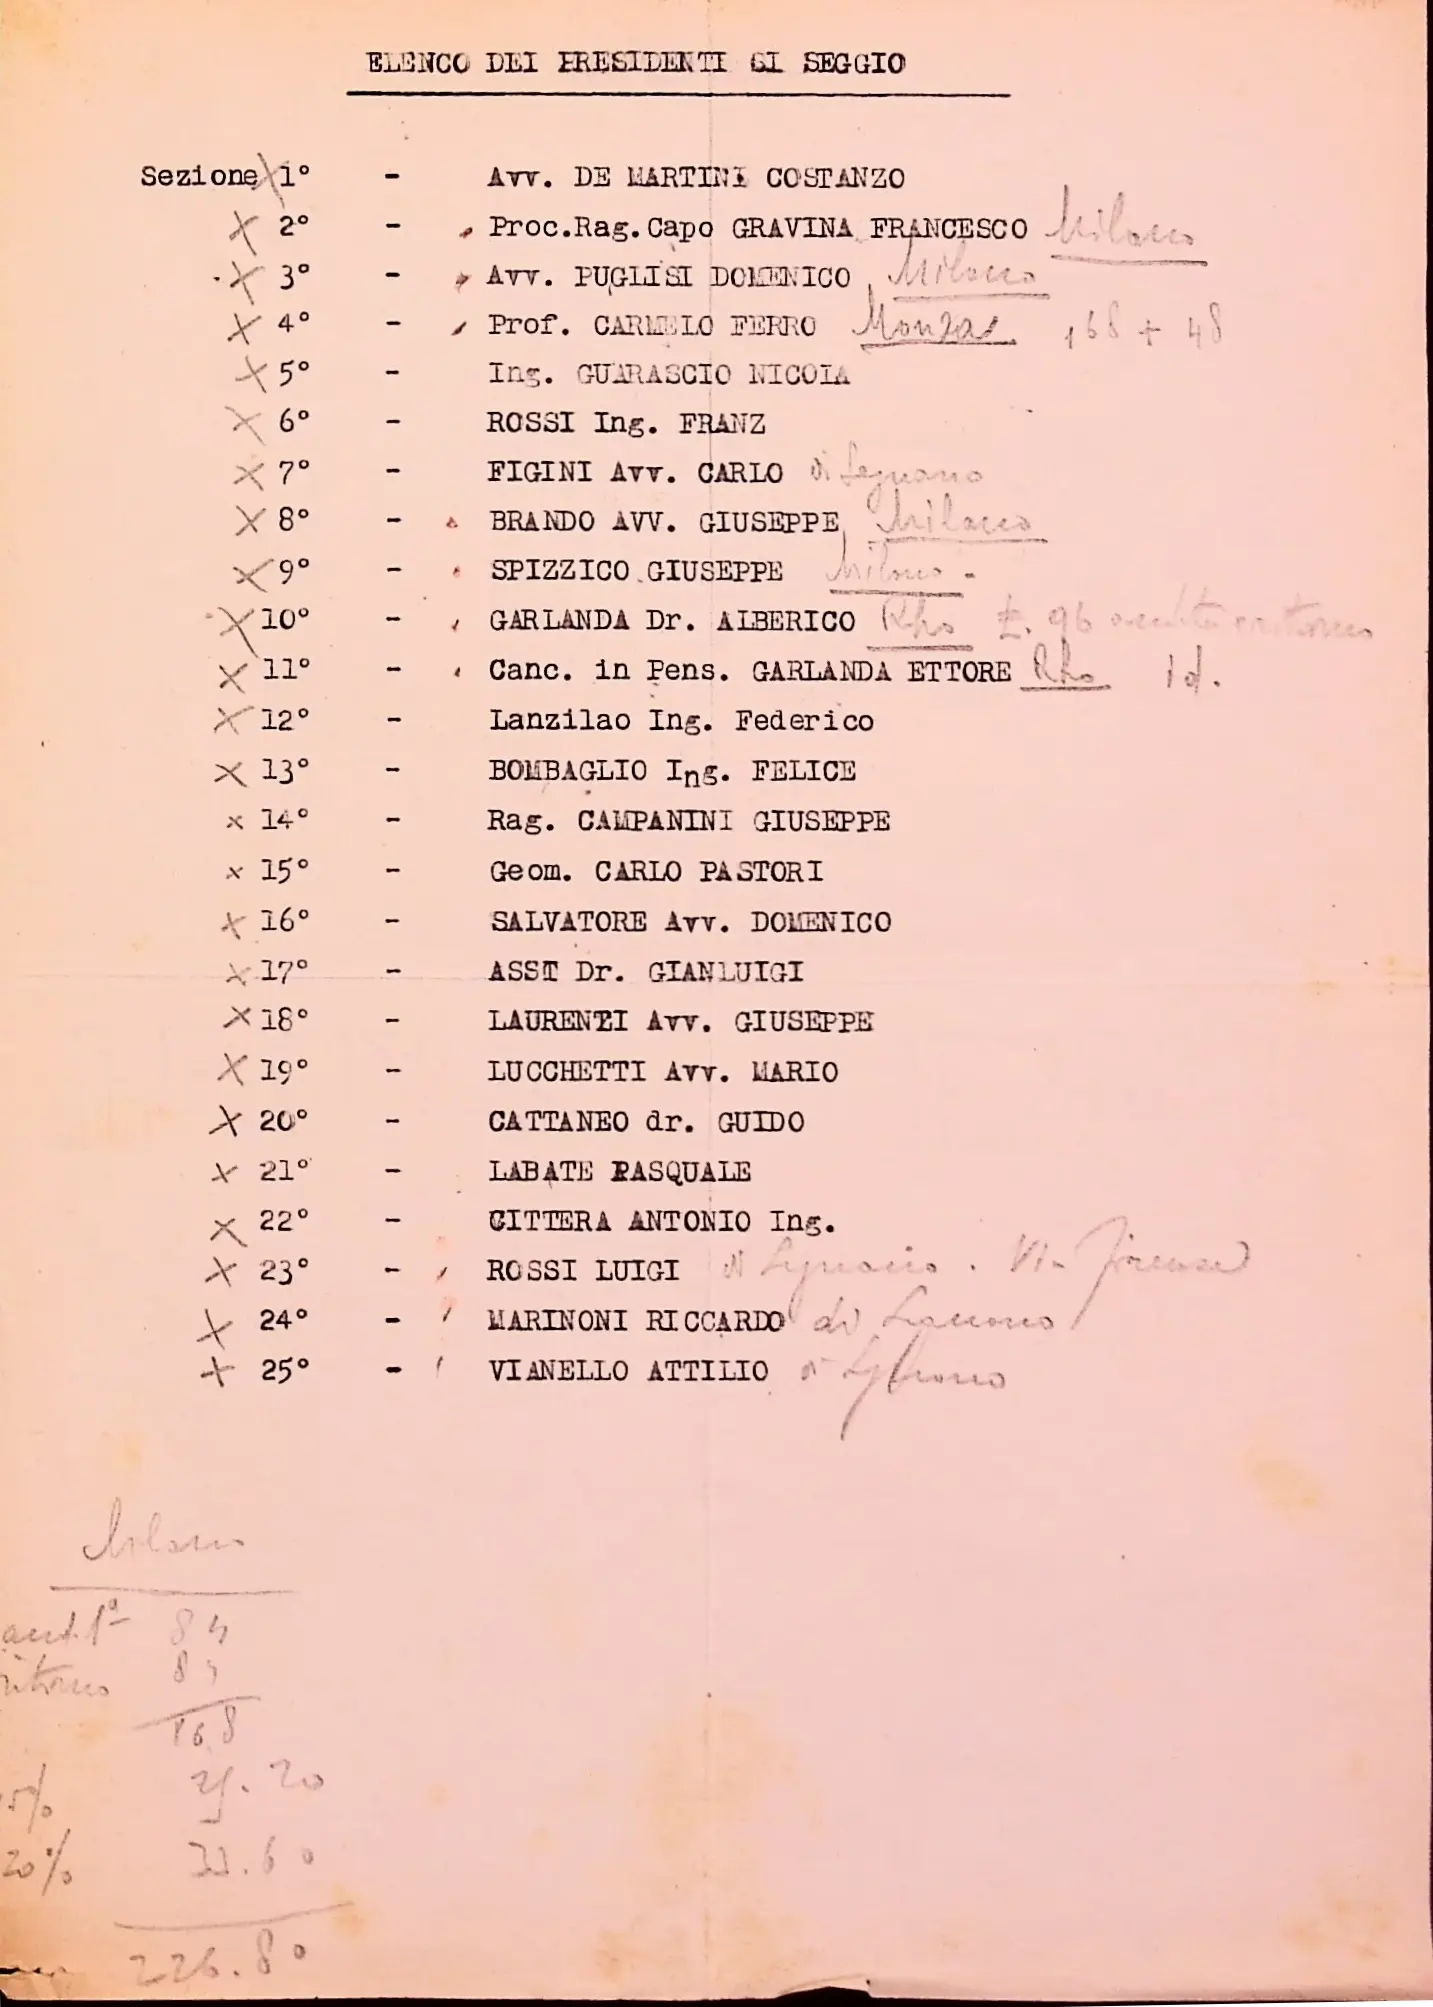 ELENCO DEI PRESIDENTI DI SEGGIO
Sezione X 1° - Avv. DE MARTINI COSTANZO
X 2° - Proc.Rag.Capo GRAVINA FRANCESCO Milano
X 3° - Avv. PUGLISI DOMENICO Milano
X 4° - Prof. CARMELO FERRO Monza 168 + 48
X 5° - Ing. GUARASCIO NICOLA
X 6° - ROSSI Ing. FRANZ
X 7° - FIGINI Avv. CARLO di Legnano
X 8° - BRANDO AVV. GIUSEPPE Milano
X 9° - SPIZZICO GIUSEPPE Milano -
X 10° - GARLANDA Dr. ALBERICO Rho £. 96 andata e ritorno
X 11° - Canc. in Pens. GARLANDA ETTORE Rho id.
X 12° - Lanzilao Ing. Federico
X 13° - BOMBAGLIO Ing. FELICE
x 14° - Rag. CAMPANINI GIUSEPPE
x 15° - Geom. CARLO PASTORI
X 16° - SALVATORE Avv. DOMENICO
X 17° - ASST Dr. GIANLUIGI
X 18° - LAURENZI Avv. GIUSEPPE
X 19° - LUCCHETTI Avv. MARIO
X 20° - CATTANEO dr. GUIDO
X 21° - LABATE PASQUALE
X 22° - CITTERA ANTONIO Ing.
X 23° - ROSSI LUIGI di Legnano. Via Firenze
X 24° - MARINONI RICCARDO di Legnano
X 25° - VIANELLO ATTILIO di Legnano
Milano
and.ta 84
ritorno 84
168
5% 25.20
20% 33.60
226.80